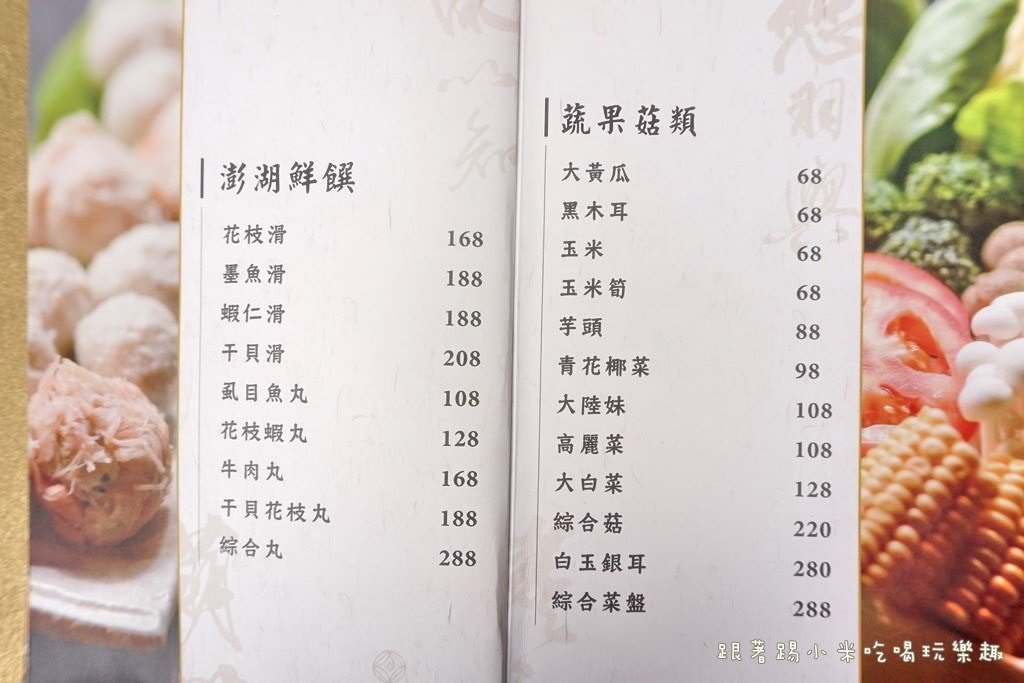 澎湖鮮饌
花枝滑 168
墨魚滑 188
蝦仁滑 188
干貝滑 208
虱目魚丸 108
花枝蝦丸 128
牛肉丸 168
干貝花枝丸 188
綜合丸 288
蔬果菇類
大黃瓜 68
黑木耳 68
玉米 68
玉米筍 68
芋頭 88
青花椰菜 98
大陸妹 108
高麗菜 108
大白菜 128
綜合菇 220
白玉銀耳 280
綜合菜盤 288
跟著踢小米吃喝玩樂趣